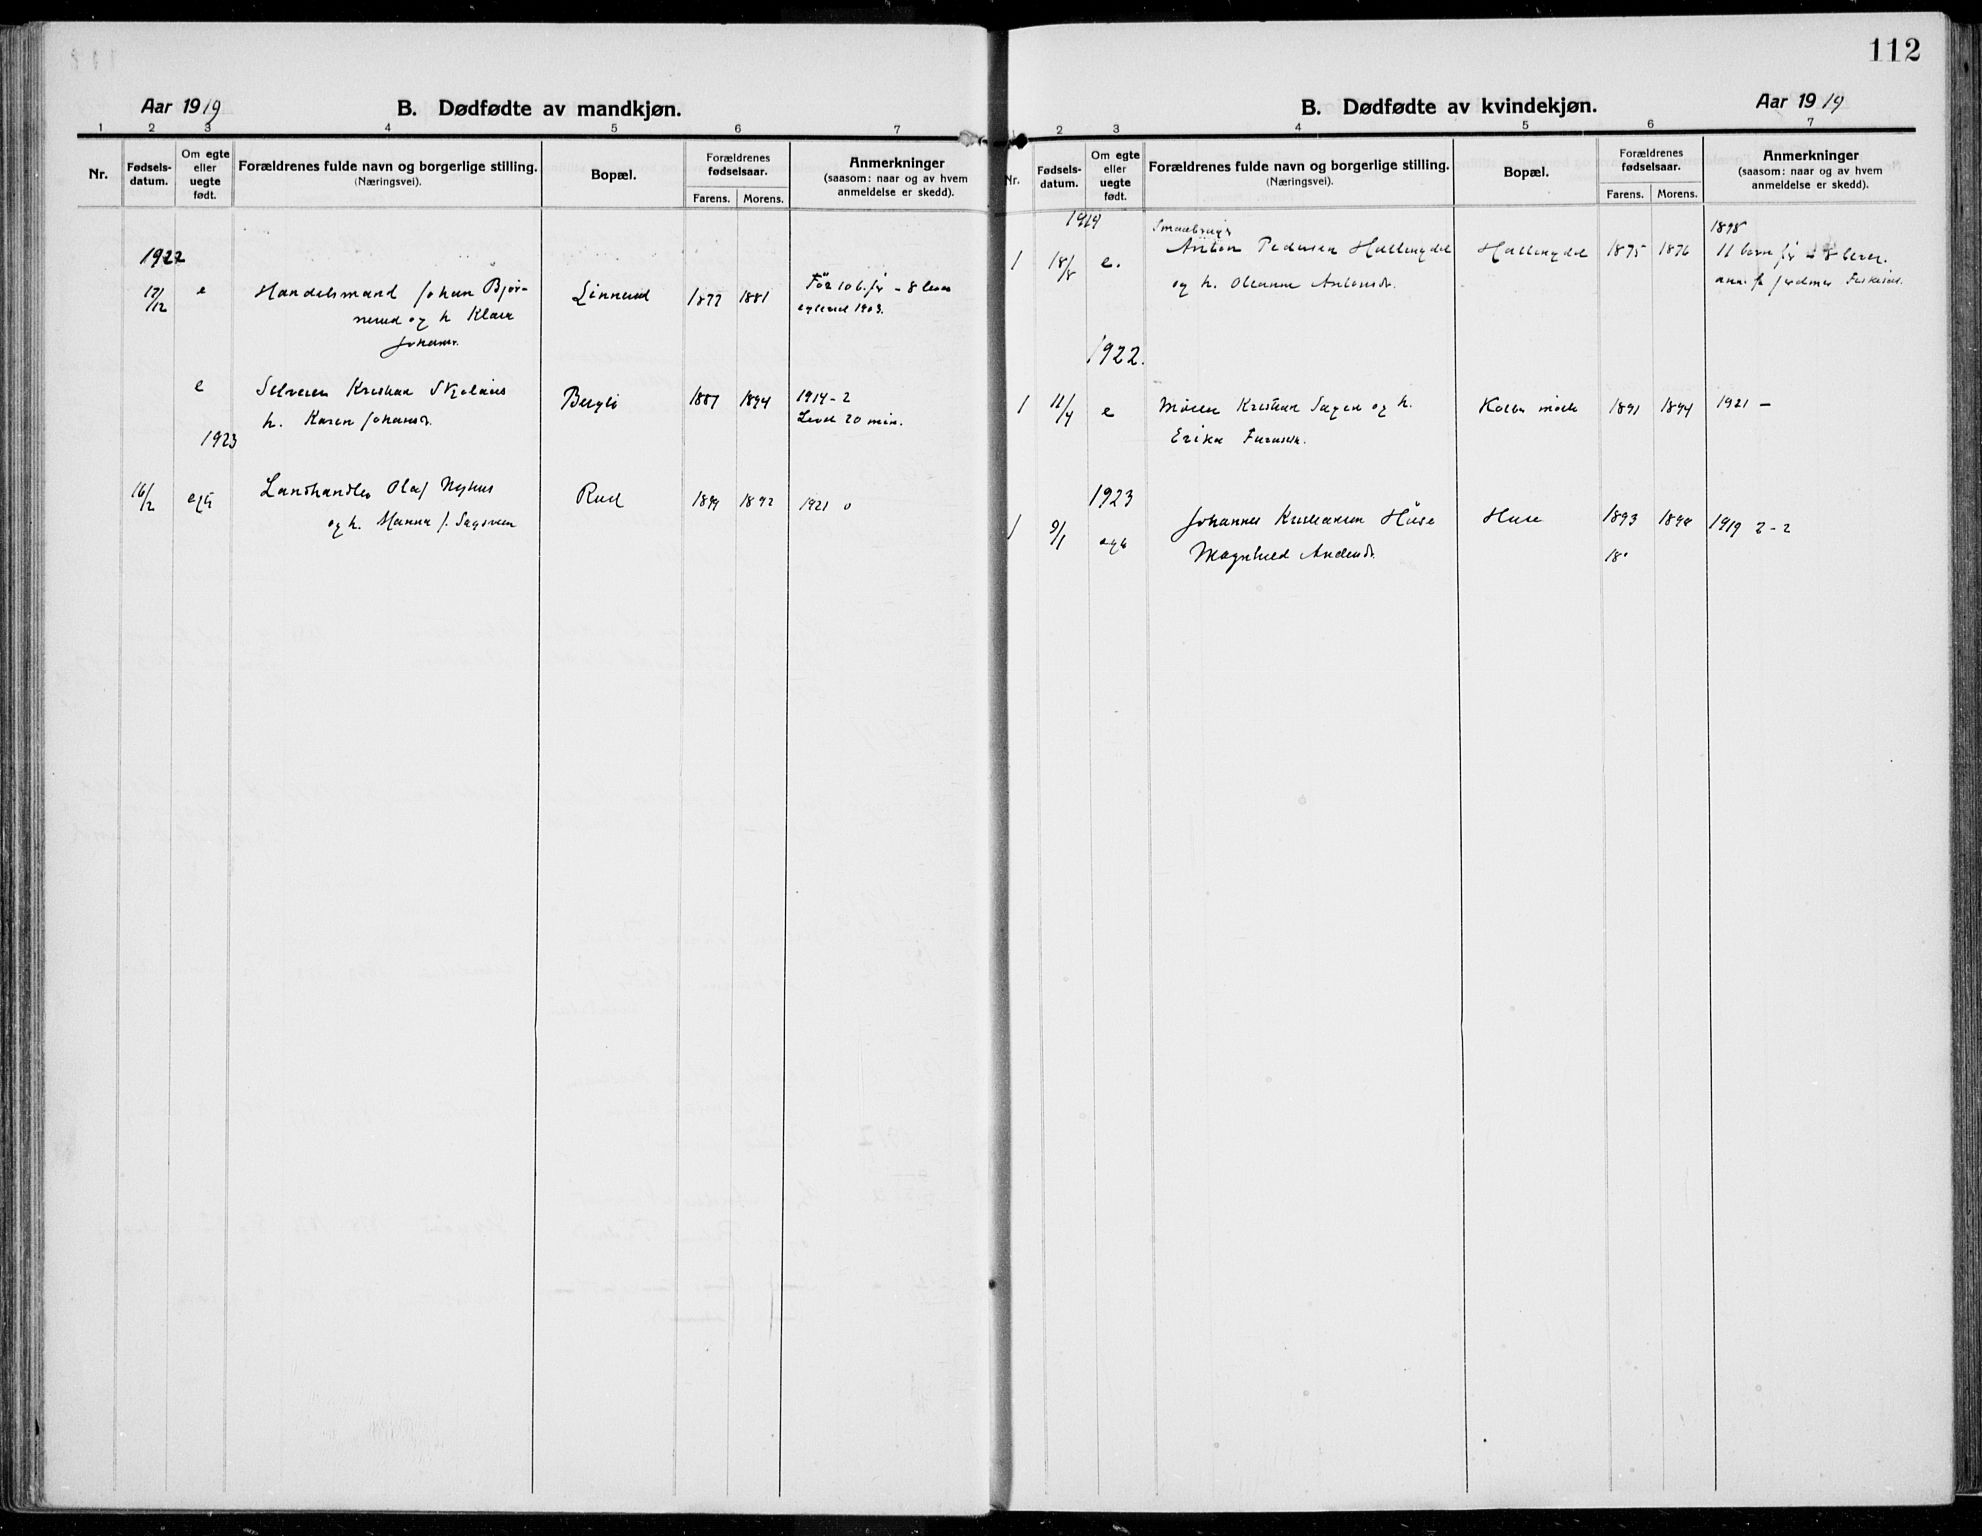 Aar 1919
B. Dødfødte av mandkjøn.
1 2 3 4 5 6 7
Nr.
Fødsels-
datum.
Om egte
eller
uegte
født.
Forældrenes fulde navn og borgerlige stilling.
(Næringsvei).
Bopæl.
Forældrenes
fødselsaar.
Farens. Morens.
Anmerkninger
(saasom: naar og av hvem
anmeldelse er skedd).
1922
17/12 e Handelsmand Johan Bjør- Linnerud 1877 1881 Før 10 b. før - 8 lever
nerud og h. Klara
Johansd. 1903.
e Kristian Bergli 1887 1894 1914 - 2
h. Karen Johansd. Levet 20 min.
1923
16/2 egte Landhandler Olaf Nyhus Rud 1899 1892 1921 0
og h. Manna f. Sagsveen
112
B. Dødfødte av kvindekjøn.
Aar 1919
1 2 3 4 5 6 7
Nr.
Fødsels-
datum.
Om egte
eller
uegte
født.
Forældrenes fulde navn og borgerlige stilling.
(Næringsvei).
Bopæl.
Forældrenes
fødselsaar.
Farens. Morens.
Anmerkninger
(saasom: naar og av hvem
anmeldelse er skedd).
1919
Smaabruger 1898
1 18/8 e. Anton Pedersen Hallengdel Hallengdel 1875 1876 11 barn før 8 lever.
og h. Oleanne Antonsdr.
1922.
1 11/4 e Kristian Sagen og h. 1891 1894 1921 -
Erika
1923
1 9/1 egte Johannes Kristiansen Huse Huse 1893 1898 1919 2-2
Magnhild Andersdr. 18